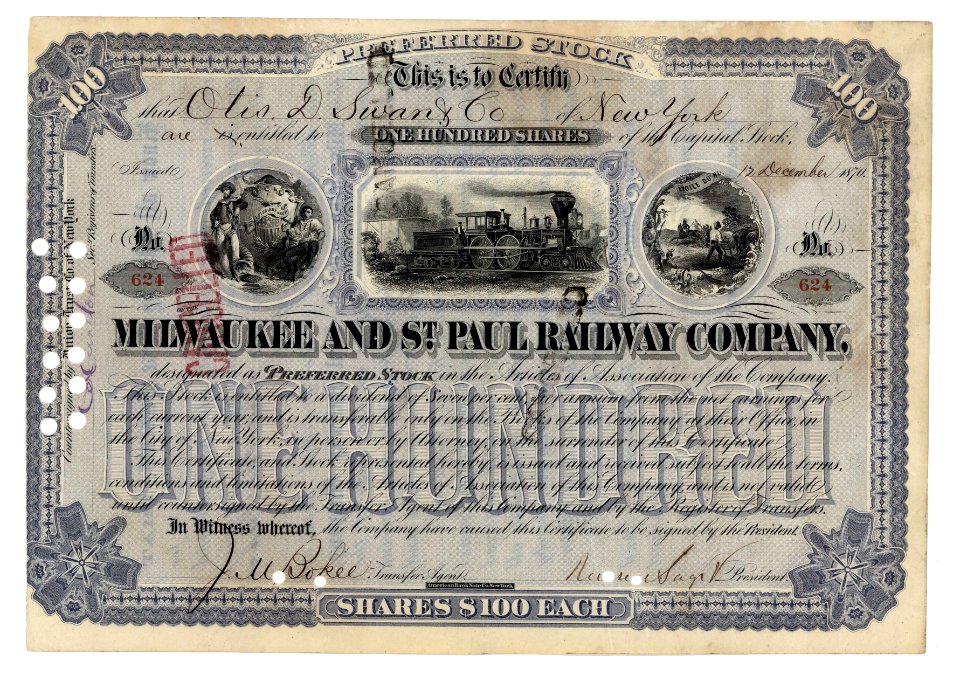 PREFERRED STOCK
This is to Certify
100
100
that Otis. D Swan & Co of New York
are is entitled to ONE HUNDRED SHARES of the Capital Stock,
Issued 17 December 1870.
No.
624
No.
624
CANCELLED
MILWAUKEE AND ST. PAUL RAILWAY COMPANY.
designated as PREFERRED STOCK in the Articles of Association of the Company.
ONE HUNDRED
This Stock is entitled to a dividend of Seven per cent per annum from the net earnings for
each current year, and is transferable only on the Books of the Company at their Office, in
the City of New York, in person or by Attorney, on the surrender of this Certificate.
This Certificate, and Stock represented hereby, is issued and received subject to all the terms,
conditions and limitations of the Articles of Association of this Company, and is not valid
until countersigned by the Transfer Agent of this Company and by the Register of Transfers.
In Witness whereof, the Company have caused this Certificate to be signed by the President.
J. M Bokee Transfer Agent,
President.
American Bank Note Co. New York
SHARES $100 EACH
Registrar of Transfers